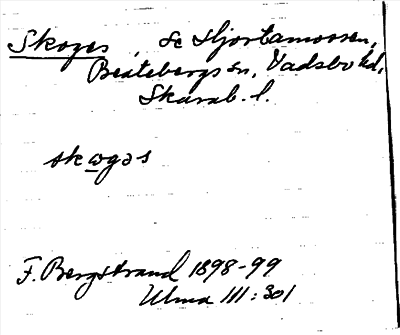 Skoges, Se Hjortamossen,
Beatebergs sn, Vadsbo hd,
Skarab. l.
skωgəs
F. Bergstrand 1898-99
Ulma III:301